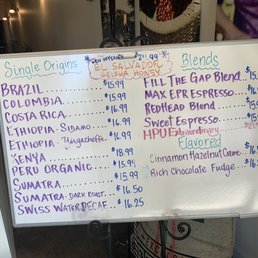 Single Origins
EL SALVADOR $24.99
GEISHA HONEY
Blends
BRAZIL $15.99
COLOMBIA $15.99
COSTA RICA $16.99
ETHIOPIA - SIDAMO $16.99
ETHIOPIA - Yirgacheffe $16.99
KENYA $18.99
PERU ORGANIC $15.99
SUMATRA $15.99
SUMATRA - DARK ROAST $16.50
SWISS WATER DECAF $16.25
FILL THE GAP Blend
MAX EPRESPRESSO
REDHEAD Blend
Sweet Espresso
HPU Extraordinary
Flavored
Cinnamon Hazelnut Creme
Rich Chocolate Fudge